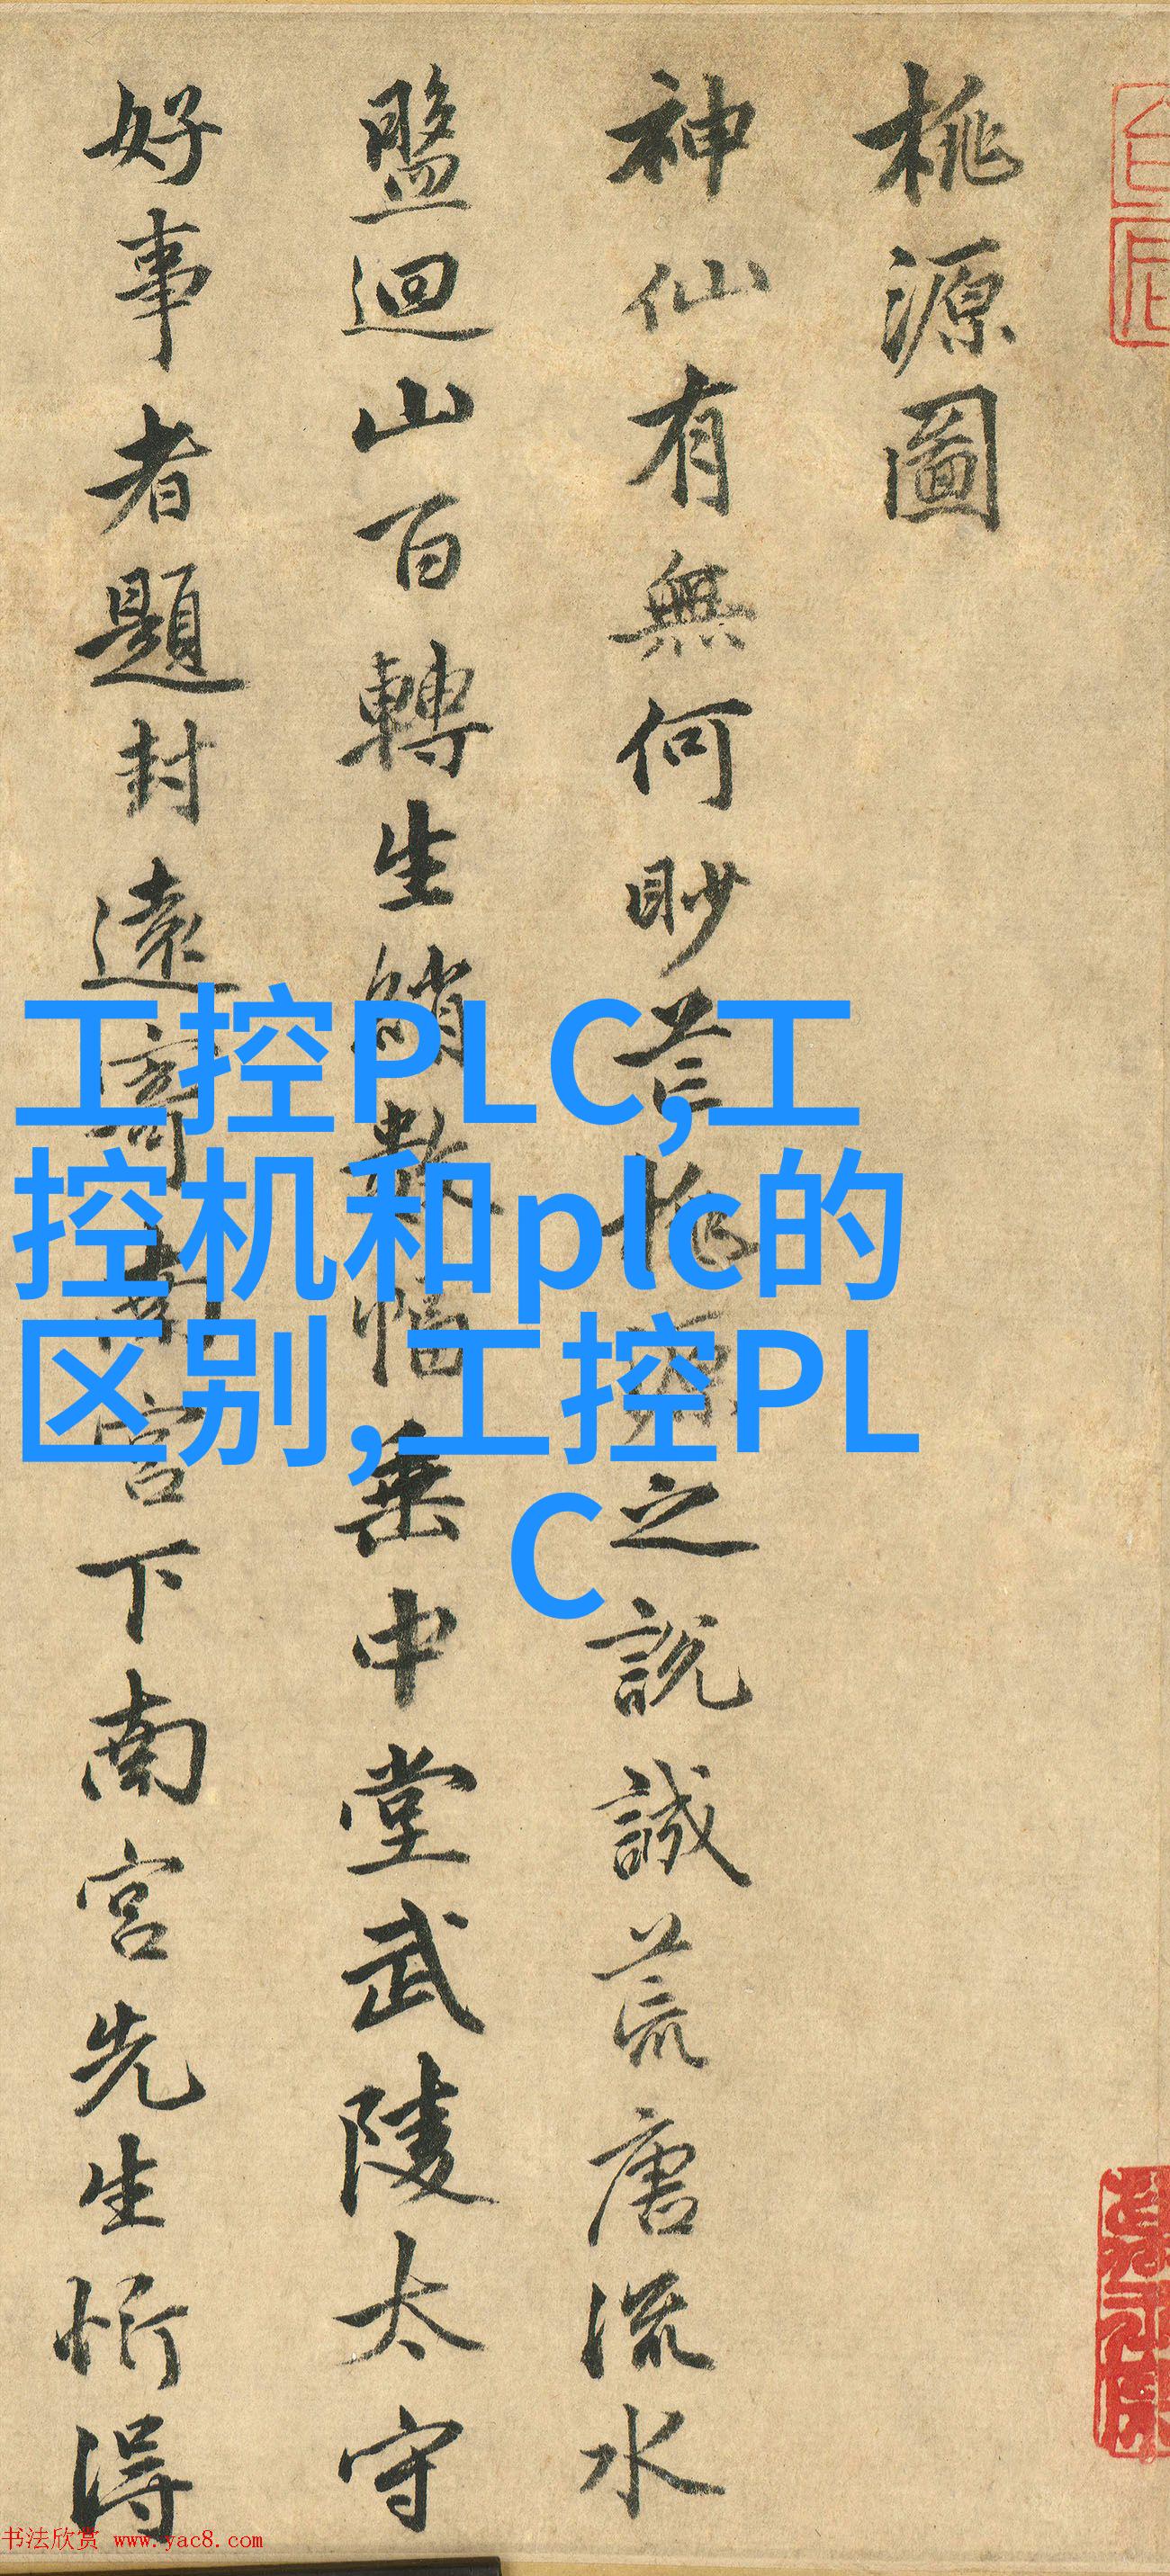 桃源圖
神仙有無何眇芒桃源之說誠荒唐流水
盤迴山百轉生綃數幅垂中堂武陵太守
好事者題封遠寄南宮下南宮先生忻得
工控PLC,工
控机和plc的
区别,工控PL
C
书法欣赏 www.yac8.com